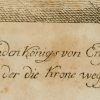 nden Königs von En
der die Krone weg